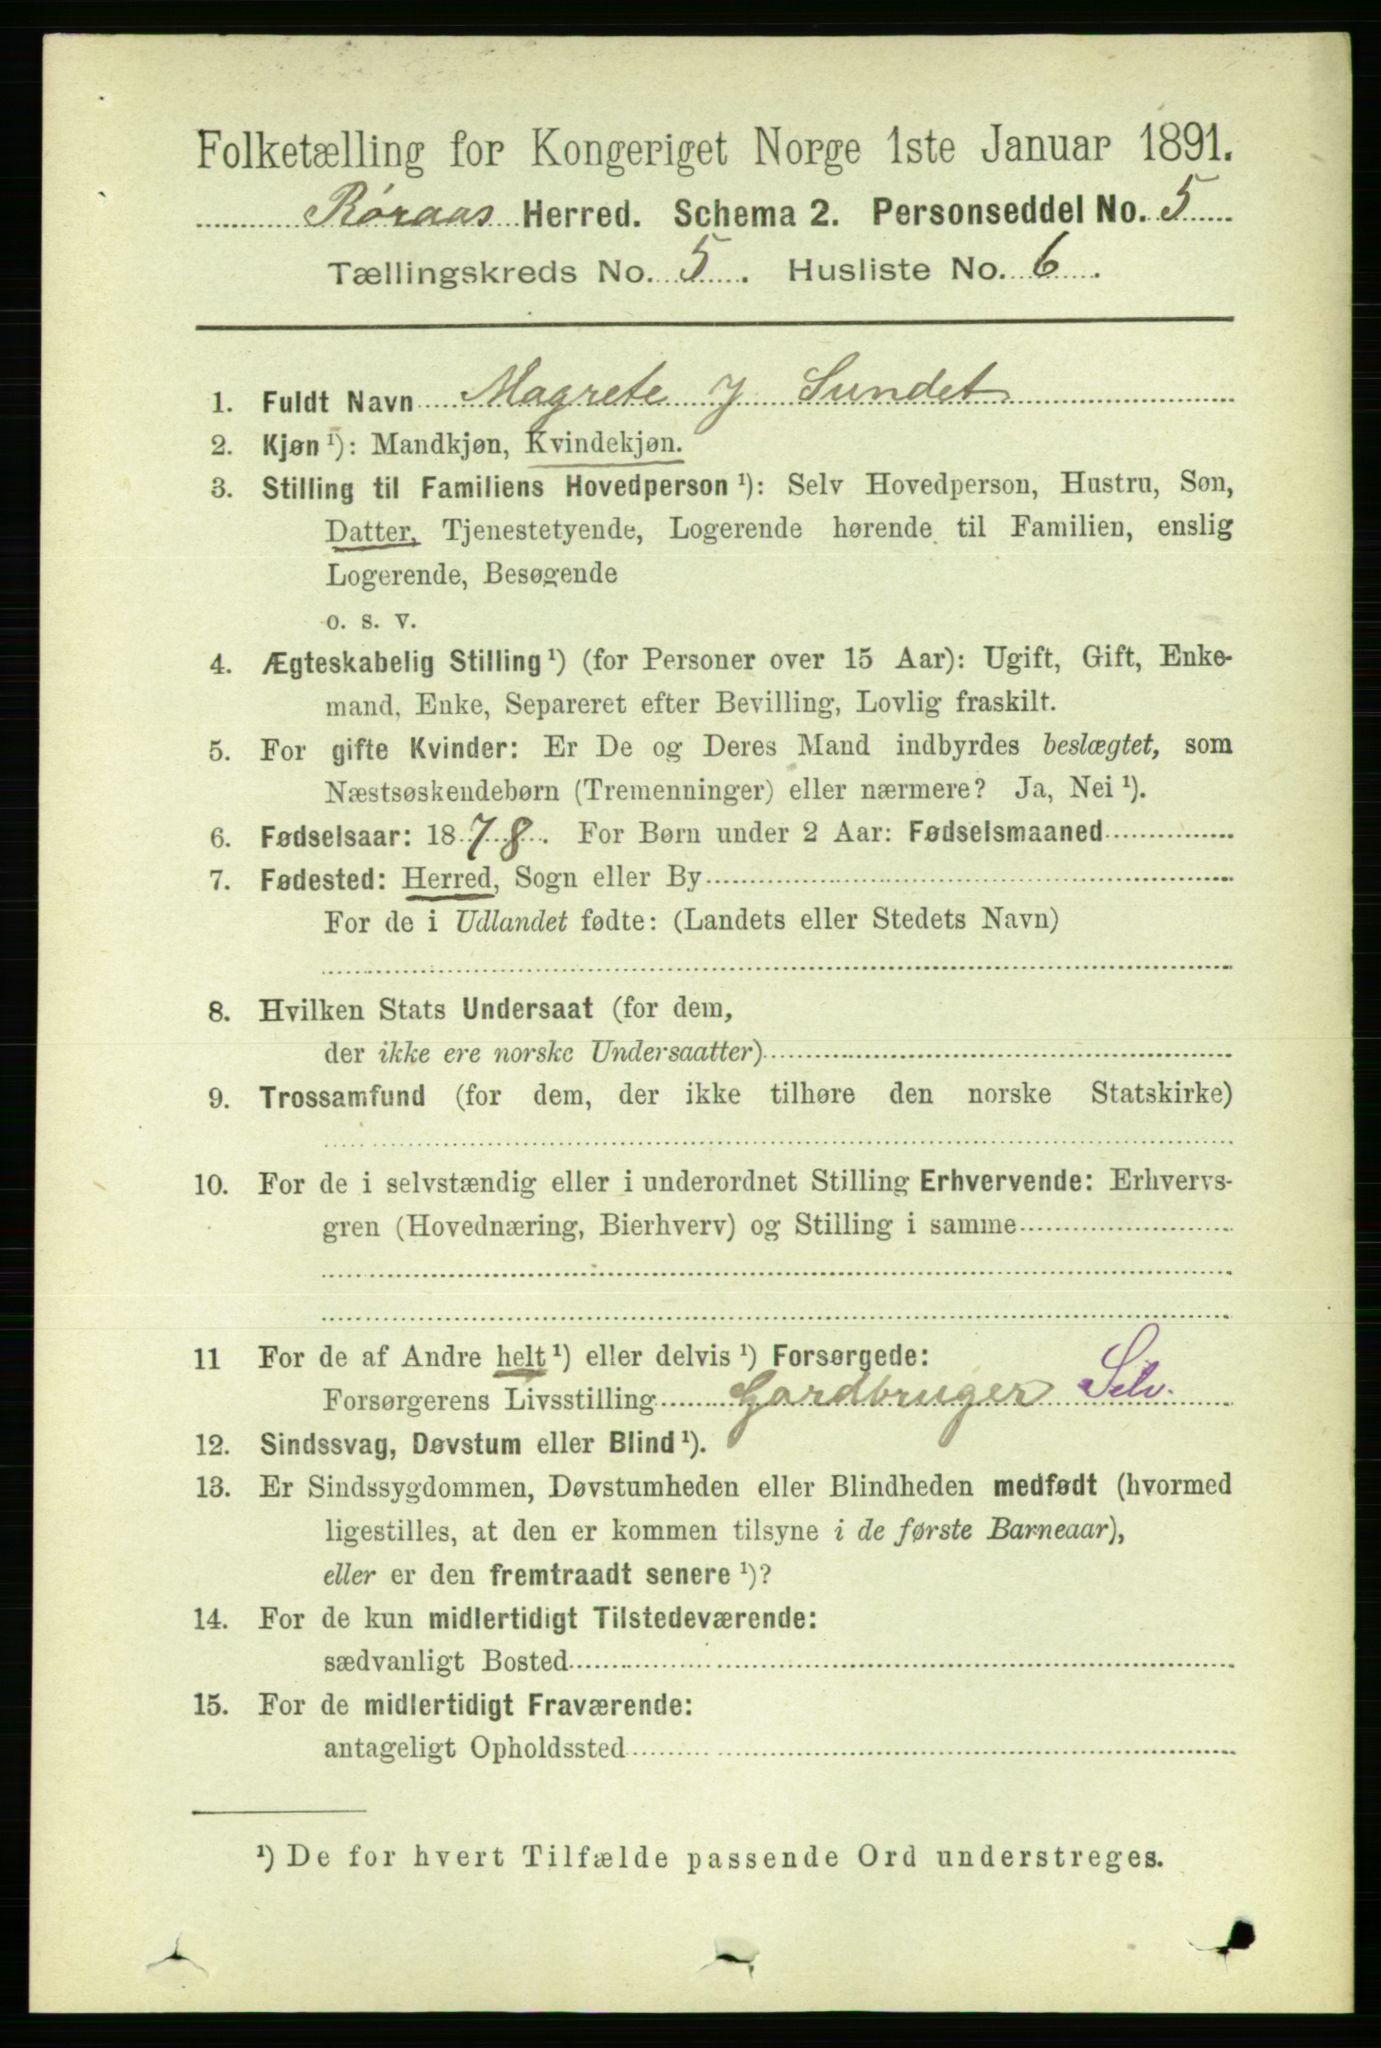 Folketælling for Kongeriget Norge 1ste Januar 1891.
Røraas Herred. Schema 2. Personseddel No. 5
Tællingskreds No. 5. Husliste No. 6.
1. Fuldt Navn Magrete J Sundet
2. Kjøn ¹): Mandkjøn, Kvindekjøn.
3. Stilling til Familiens Hovedperson ¹): Selv Hovedperson, Hustru, Søn,
Datter, Tjenestetyende, Logerende hørende til Familien, enslig
Logerende, Besøgende
o. s. v.
4. Ægteskabelig Stilling ¹) (for Personer over 15 Aar): Ugift, Gift, Enke-
mand, Enke, Separeret efter Bevilling, Lovlig fraskilt.
5. For gifte Kvinder: Er De og Deres Mand indbyrdes beslægtet, som
Næstsøskendebørn (Tremenninger) eller nærmere? Ja, Nei ¹).
6. Fødselsaar: 1878. For Børn under 2 Aar: Fødselsmaaned
7. Fødested: Herred, Sogn eller By
For de i Udlandet fødte: (Landets eller Stedets Navn)
8. Hvilken Stats Undersaat (for dem,
der ikke ere norske Undersaatter)
9. Trossamfund (for dem, der ikke tilhøre den norske Statskirke)
10. For de i selvstændig eller i underordnet Stilling Erhvervende: Erhvervs-
gren (Hovednæring, Bierhverv) og Stilling i samme
11 For de af Andre helt ¹) eller delvis ¹) Forsørgede:
Forsørgerens Livsstilling Gardbruger Selv.
12. Sindssvag, Døvstum eller Blind ¹).
13. Er Sindssygdommen, Døvstumheden eller Blindheden medfødt (hvormed
ligestilles, at den er kommen tilsyne i de første Barneaar),
eller er den fremtraadt senere ¹)?
14. For de kun midlertidigt Tilstedeværende:
sædvanligt Bosted
15. For de midlertidigt Fraværende:
antageligt Opholdssted
¹) De for hvert Tilfælde passende Ord understreges.